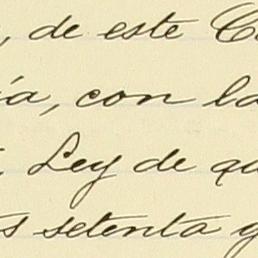 , de este
con la
Ley de
setenta y